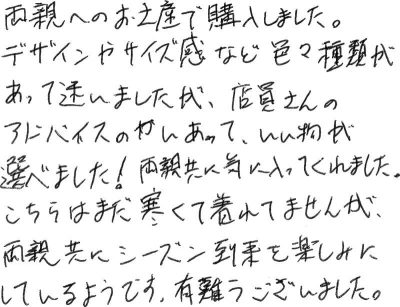 両親へのお土産で購入しました。
デザインやサイズ感など色々種類が
あって迷いましたが、店員さんの
アドバイスのかいあって、いい物が
選べました！両親共に気に入ってくれました。
こちらはまだ寒くて着れてませんが、
両親共にシーズン到来を楽しみに
しているようです。有難うございました。